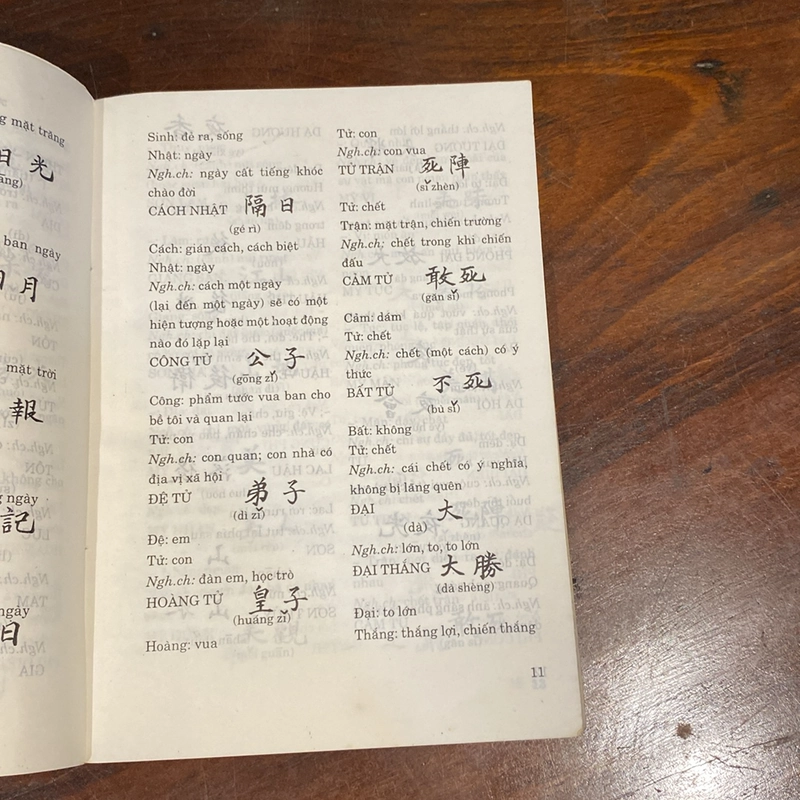 g mặt trăng
日光
ăng)
ban ngày
月
mặt trời
報
g ngày
記
ngày
日
Sinh: đẻ ra, sống
Nhật: ngày
Ngh.ch: ngày cất tiếng khóc
chào đời
CÁCH NHẬT 隔日
(gé rì)
Cách: gián cách, cách biệt
Nhật: ngày
Ngh.ch: cách một ngày
(lại đến một ngày) sẽ có một
hiện tượng hoặc một hoạt động
nào đó lặp lại
CÔNG TỬ 公子
(gōng zǐ)
Công: phẩm tước vua ban cho
bề tôi và quan lại
Tử: con
Ngh.ch: con quan; con nhà có
địa vị xã hội
ĐỆ TỬ 弟子
(dì zǐ)
Đệ: em
Tử: con
Ngh.ch: đàn em, học trò
HOÀNG TỬ 皇子
(huáng zǐ)
Hoàng: vua
Tử: con
Ngh.ch: con vua
TỬ TRẬN 死陣
(sǐ zhèn)
Tử: chết
Trận: mặt trận, chiến trường
Ngh.ch: chết trong khi chiến
đấu
CẢM TỬ 敢死
(gǎn sǐ)
Cảm: dám
Tử: chết
Ngh.ch: chết (một cách) có ý
thức
BẤT TỬ 不死
(bù sǐ)
Bất: không
Tử: chết
Ngh.ch: cái chết có ý nghĩa,
không bị lãng quên
ĐẠI 大
(dà)
Ngh.ch: lớn, to, to lớn
ĐẠI THẮNG 大勝
(dà shèng)
Đại: to lớn
Thắng: thắng lợi, chiến thắng
11